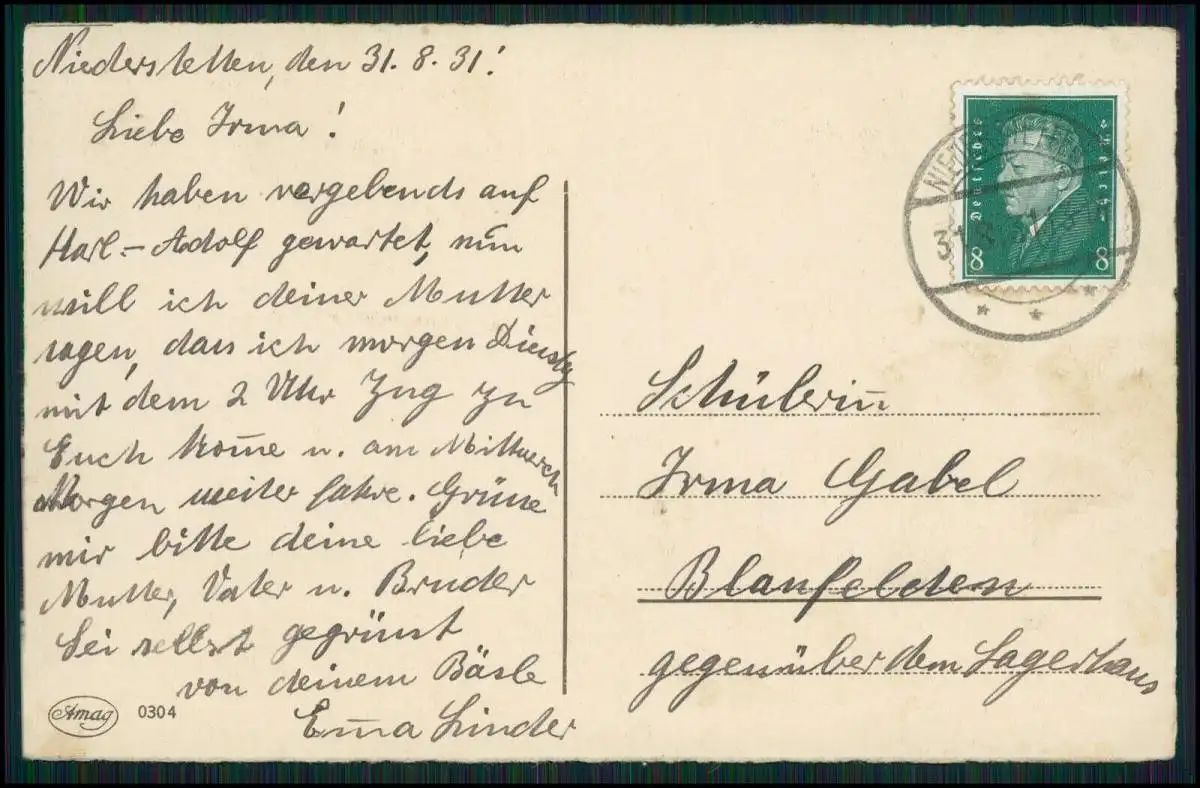 Niederstetten, den 31. 8. 31!
Liebe Irma!
Wir haben vergebends auf
Karl-Adolf gewartet, nun
will ich deiner Mutter
sagen, dass ich morgen Dienstg
mit dem 2 Uhr Zug zu
Euch kom̅e u. am Mittwoch
Morgen weiter fahre. Grüsse
mir bitte deine liebe
Mutter, Vater u. Bruder
Sei selbst gegrüsst
von deinem Bäsle
Em̅a Linder
Amag 0304
Deutsches Reich
8 8
Schülerin̅
Irma Gabel
Blaufelden
gegenüber dem Lagerhaus